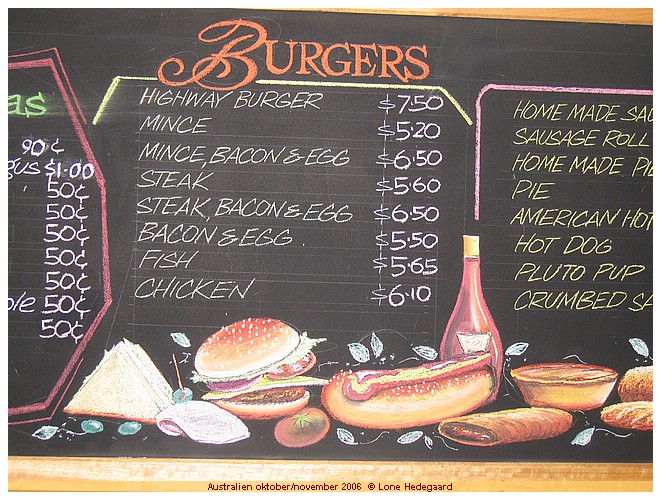 BURGERS
HIGHWAY BURGER $7.50
MINCE $5.20
MINCE, BACON & EGG $6.50
STEAK $5.60
STEAK, BACON & EGG $6.50
BACON & EGG $5.50
FISH $5.65
CHICKEN $6.10
90¢
$1.00
50¢
50¢
50¢
50¢
50¢
50¢
50¢
HOME MADE
SAUSAGE ROLL
HOME MADE
PIE
AMERICAN
HOT DOG
PLUTO PUP
CRUMBED
Australien oktober/november 2006 © Lone Hedegaard